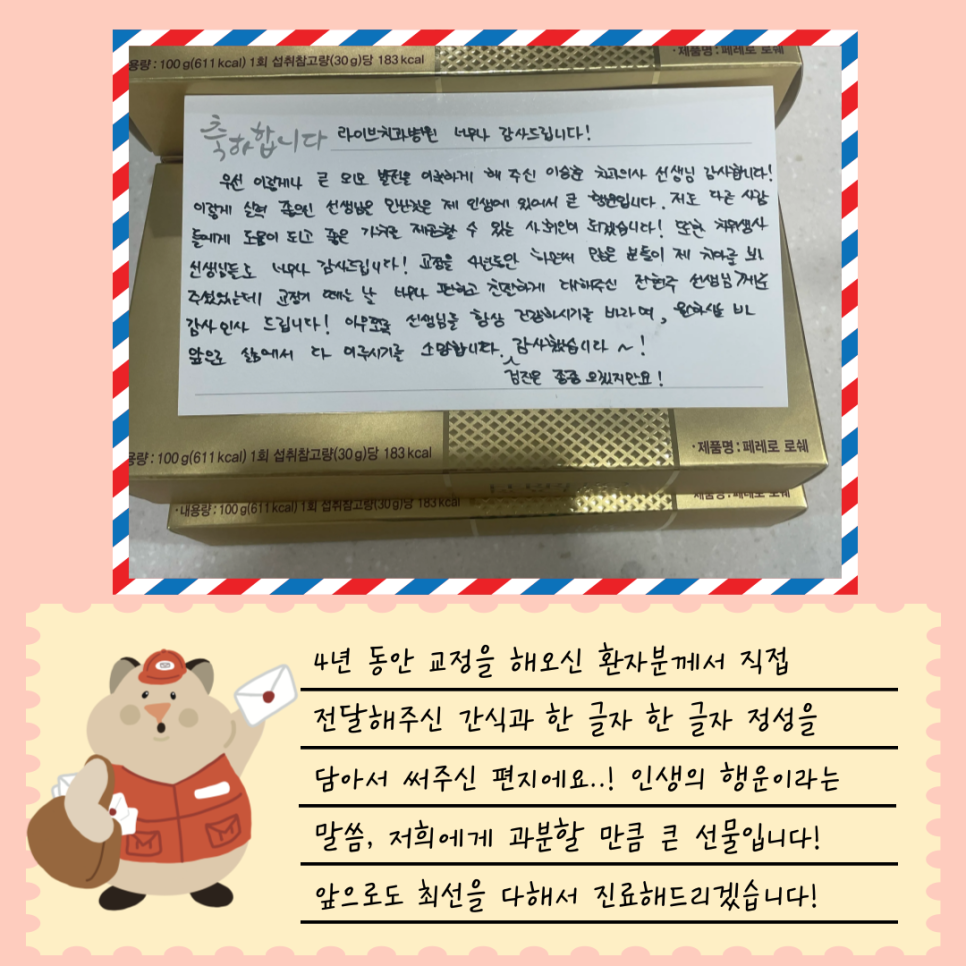 용량 : 100 g(611 kcal) 1회 섭취참고량(30 g)당 183 kcal
· 제품명 : 페레로 로쉐
축하합니다 라이브치과병원 너무나 감사드립니다!
우선 이렇게나 큰 외모 발전을 이룩하게 해 주신 이승준 치과의사 선생님 감사합니다!
이렇게 실력 좋으신 선생님을 만난것은 제 인생에 있어서 큰 행운입니다. 저도 다른 사람
들에게 도움이 되고 좋은 가치를 제공할 수 있는 사회인이 되겠습니다! 또한 치위생사
선생님들도 너무나 감사드립니다! 교정을 4년동안 하면서 많은 분들이 제 치아를 봐
주셨었는데 교정기 떼는 날 너무나 편하고 친절하게 대해주신 잔현주 선생님께도
감사인사 드립니다! 아무쪼록 선생님들 항상 건강하시기를 바라며, 원하시는 바
앞으로 삶에서 다 이루시기를 소망합니다. 감사했습니다 ~!
검진은 종종 오겠지만요!
용량 : 100 g(611 kcal) 1회 섭취참고량(30 g)당 183 kcal
· 제품명 : 페레로 로쉐
· 내용량 : 100 g(611 kcal) 1회 섭취참고량(30 g)당 183 kcal
제품명 : 페레로 로쉐
4년 동안 교정을 해오신 환자분께서 직접
전달해주신 간식과 한 글자 한 글자 정성을
담아서 써주신 편지에요..! 인생의 행운이라는
말씀, 저희에게 과분할 만큼 큰 선물입니다!
앞으로도 최선을 다해서 진료해드리겠습니다!